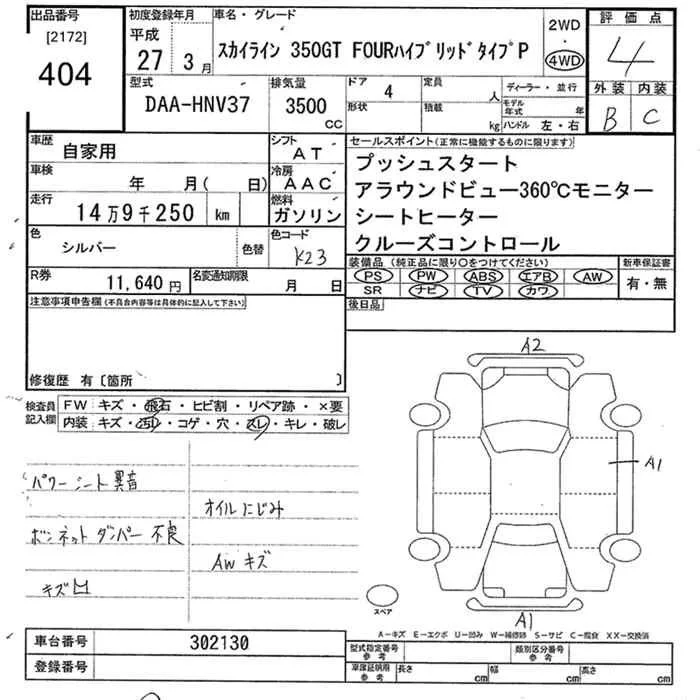 出品番号
[2172]
404
初度登録年月
平成
27 3月
車名・グレード
スカイライン 350GT FOURハイブリッドタイプP
2WD
・
4WD
評価点
4
外装 内装
B C
型式
DAA-HNV37
排気量
3500
CC
ドア
4
形状
定員
人
積載
kg
ディーラー・並行
モデル年式 年
ハンドル 左・右
車歴
自家用
シフト
AT
車検
年 月( 日)
冷房
AAC
走行
14万9千250 km
燃料
ガソリン
色
シルバー
色替
色コード
K23
R券
11,640円
名変通知期限
月 日
セールスポイント(正常に機能するものに限ります)
プッシュスタート
アラウンドビュー360℃モニター
シートヒーター
クルーズコントロール
装備品(純正品に限り○をつけてください)
PS PW ABS エアB AW
SR ナビ TV カワ
新車保証書
有・無
後日品
注意事項申告欄(不具合内容等は具体的に記入して下さい)
修復歴 有〔箇所 〕
検査員記入欄
FW キズ・飛石・ヒビ割・リペア跡・×要
内装 キズ・汚レ・コゲ・穴・スレ・キレ・破レ
パワーシート異音
ボンネットダンパー不良
キズ凹
オイルにじみ
AWキズ
A2
A1
A1
スペア
A-キズ E-エクボ U-凹み W-補修跡 S-サビ C-腐食 XX-交換済
車台番号
302130
登録番号
型式指定番号
参考
類別区分番号
参考
車庫証明用
参考
長さ cm
幅 cm
高さ cm